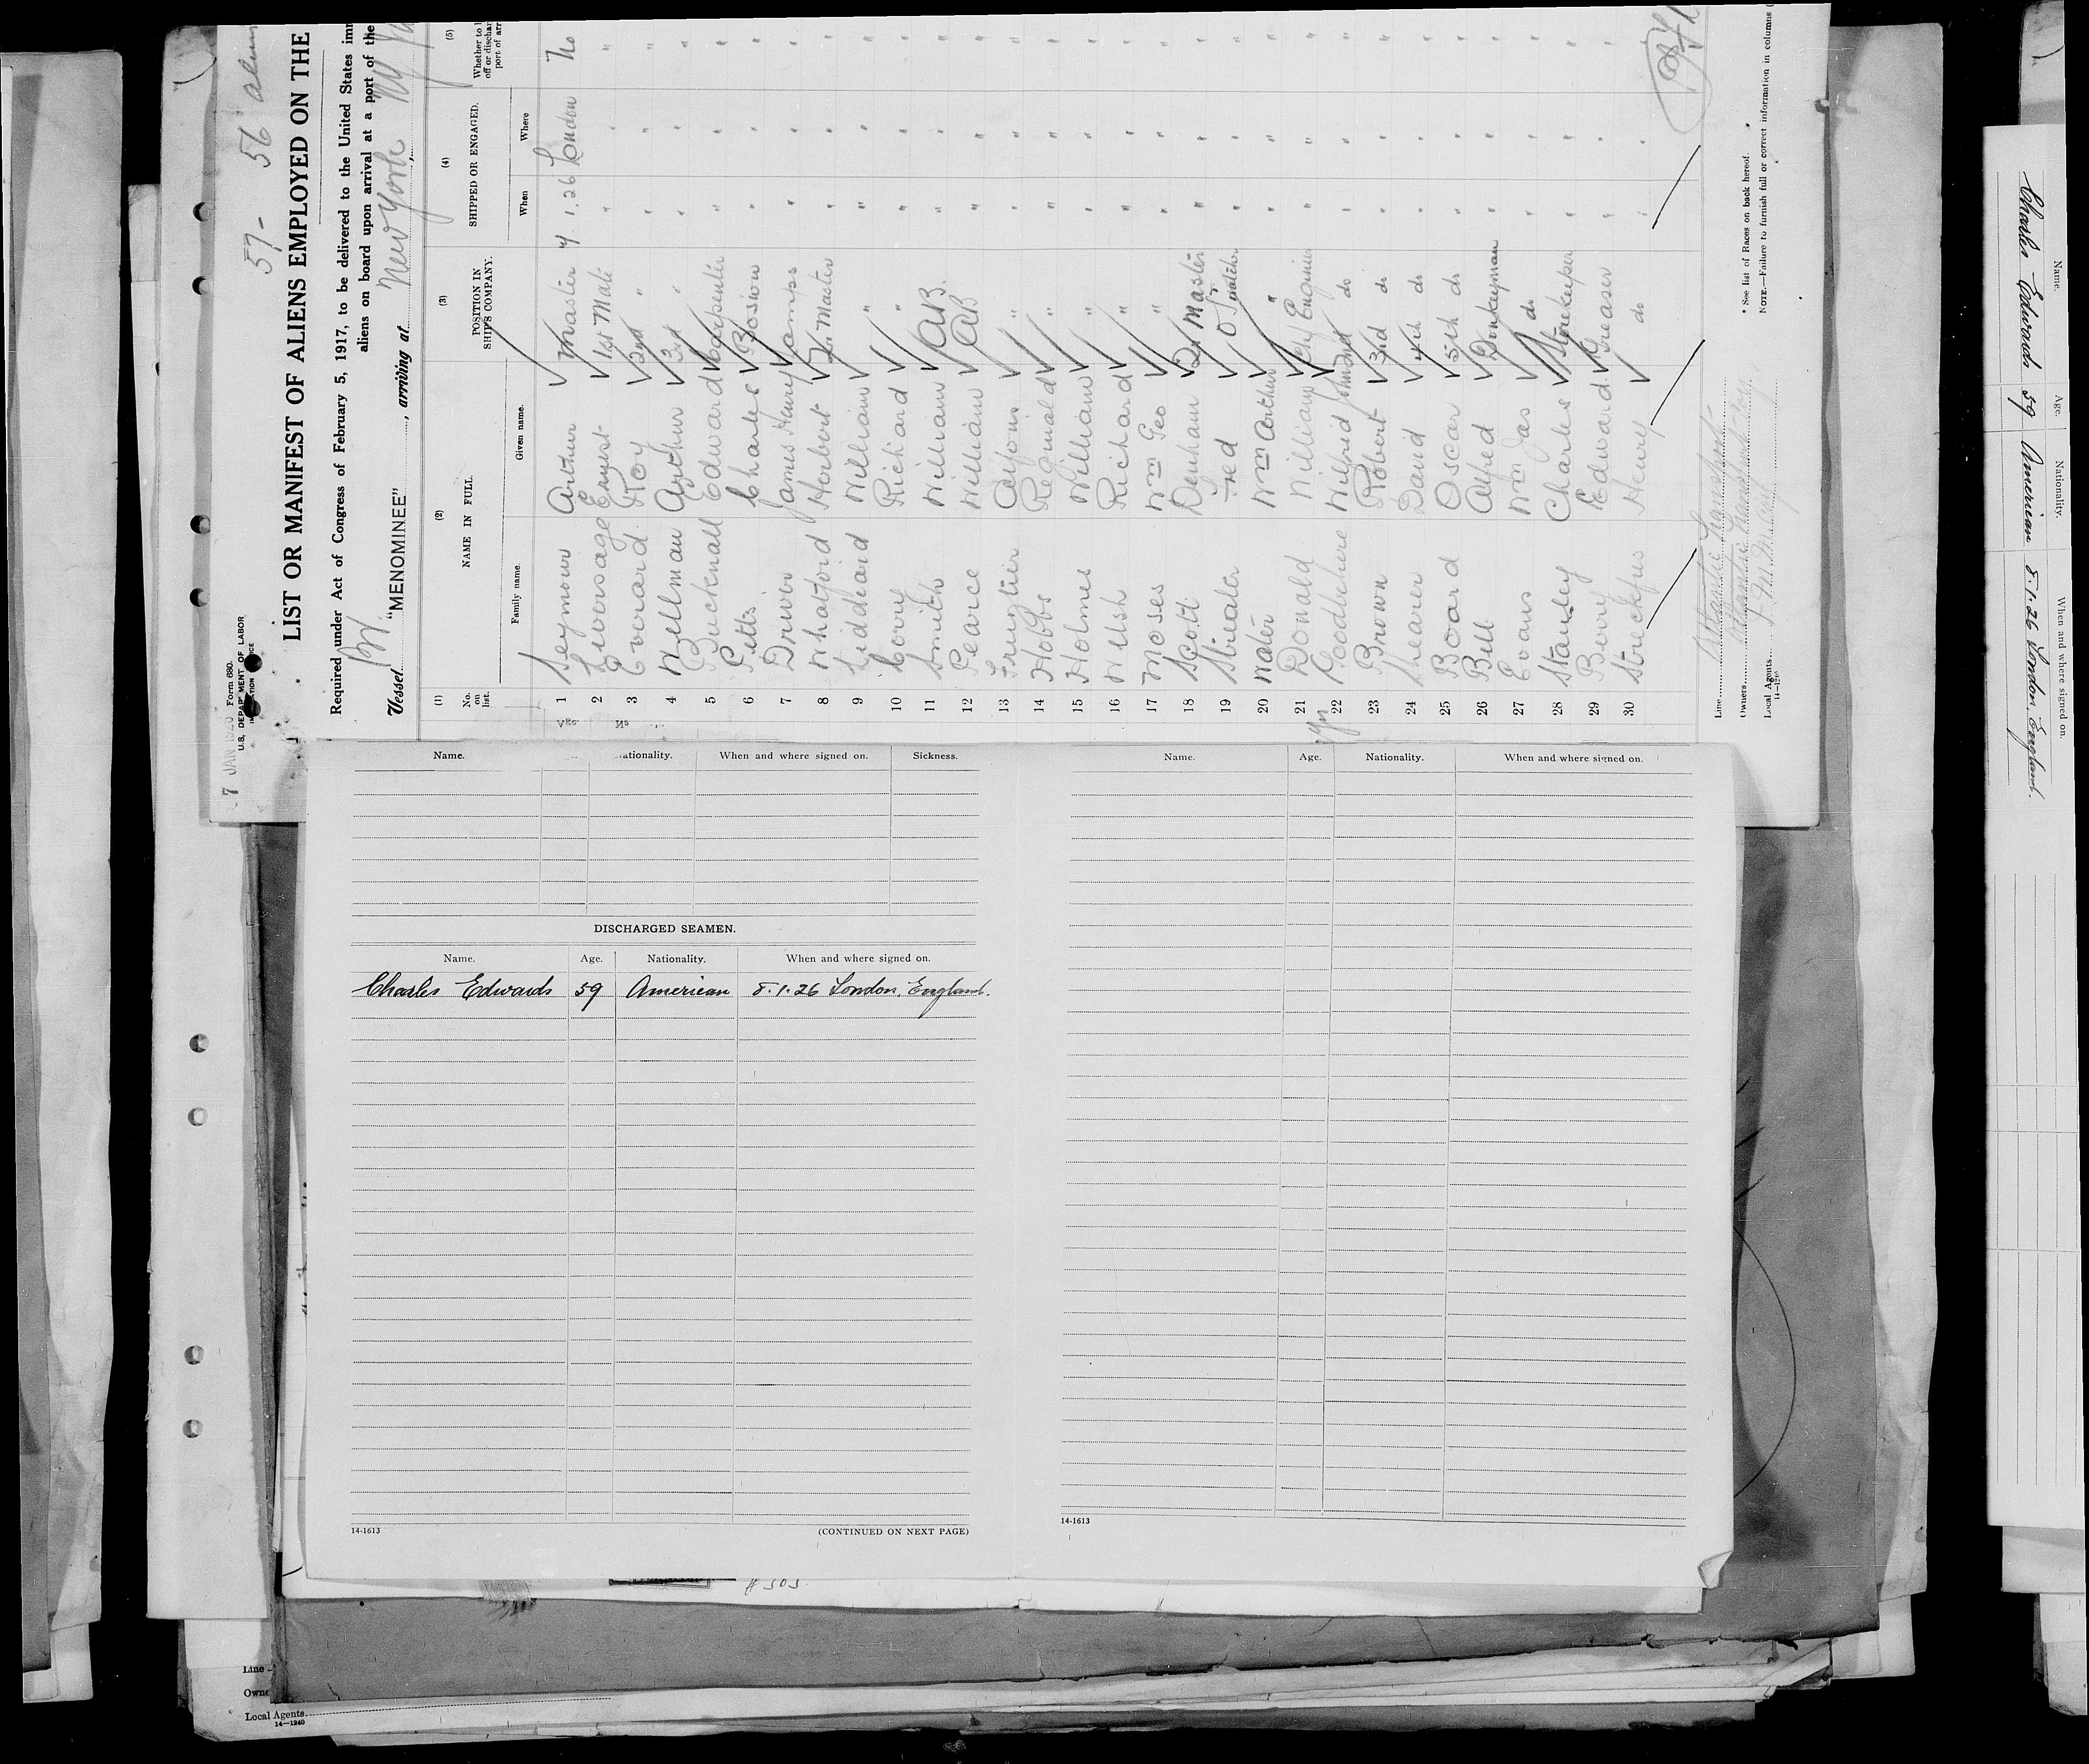 57 - 56 aliens
LIST OR MANIFEST OF ALIENS EMPLOYED ON THE
Required under Act of Congress of February 5, 1917, to be delivered to the United States
aliens on board upon arrival at a port of the
Vessel "MENOMINEE", arriving at New York
Form 680.
U.S. DEPARTMENT OF LABOR
7 JAN 1926
(1) (2) (3) (4) (5)
No. on list. NAME IN FULL POSITION IN SHIP'S COMPANY. SHIPPED OR ENGAGED. Whether to
off or discha
port of arr
Family name. Given name. When Where
1 Seymour Arthur Master 7 1.26 London No
2 Liversage Ernest 1st Mate " " "
3 Everard Roy 2nd " " " "
4 Wellsman Arthur 3rd " " " "
5 Bucknall Edward Carpenter " " "
6 Pitts Charles Bosion " " "
7 Driver James Henry Lamps " " "
8 Whatford Herbert Qr Master " " "
9 Liddeard William " " " "
10 Corry Richard " " " "
11 Smith William AB. " " "
12 Pearce William AB " " "
13 Alfons " " " "
14 Hobbs Reginald " " " "
15 Holmes William " " " "
16 Welsh Richard " " " "
17 Moses Wm Geo " " " "
18 Scott Denham Qr Master " " "
19 Streater Fred OS " " "
20 Water Wm Arthur " " " "
21 Donald William Chf Engineer " " "
22 Goodbehere Wilfred John 2nd do " " "
23 Brown Robert 3rd do " " "
24 Shearer David 4th do " " "
25 Board Oscar 5th do " " "
26 Bell Alfred Donkeyman " " "
27 Evans Wm Jas do " " "
28 Stanley Charles Storekeeper " " "
29 Berry Edward Greaser " " "
30 Streckfus Henry do " " "
Line Atlantic Transport
Owners Atlantic Transport Coy
Local Agents
14-1240
* See list of Races on back hereof.
NOTE.—Failure to furnish full or correct information in columns
Name. Nationality. When and where signed on. Sickness.
DISCHARGED SEAMEN.
Name. Age. Nationality. When and where signed on.
Charles Edwards 59 American 8.1.26 London, England.
14-1613 (CONTINUED ON NEXT PAGE)
Name. Age. Nationality. When and where signed on.
14-1613
# 503
Line
Owne
Local Agents
14-1240
Name. Age. Nationality. When and where signed on.
Charles Edwards 59 American 8.1.26 London, England.